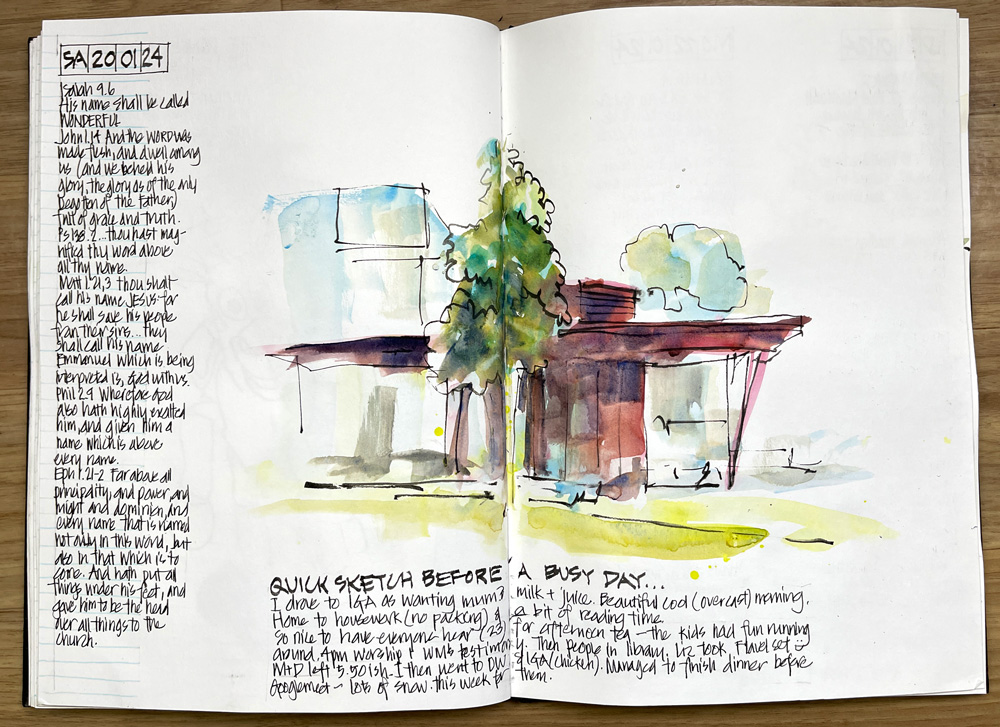 SA 20 01 24
Isaiah 9.6
His name shall be called
WONDERFUL
John 1.14 And the WORD was
made flesh, and dwelt among
us (and we beheld his
glory, the glory as of the only
begotten of the Father,)
full of grace and truth.
Ps 138.2... thou hast mag-
nified thy word above
all thy name.
Matt 1.21,3 thou shalt
call his name JESUS: for
he shall save his people
from their sins... they
shall call his name
Emmanuel which is being
interpreted is, God with us.
Phil 2.9 Wherefore God
also hath highly exalted
him, and given him a
name which is above
every name.
Eph 1.21-2 Far above all
principality, and power, and
might and dominion, and
every name that is named
not only in this world, but
also in that which is to
come. And hath put all
things under his feet, and
gave him to be the head
over all things to the
church.
QUICK SKETCH BEFORE A BUSY DAY...
I drove to IGA as wanting mum's milk + juice. Beautiful cool (overcast) morning.
Home to housework (no packing) & a bit of reading time.
So nice to have everyone hear (23) for afternoon tea - the kids had fun running
around. 4pm worship & WM's testimony. Then people in library. Liz took. Flavel set
M+D left 5.50ish. I then went to DW & IGA (chicken). Managed to finish dinner before
Googlemeet - lots of snow. this week for them.